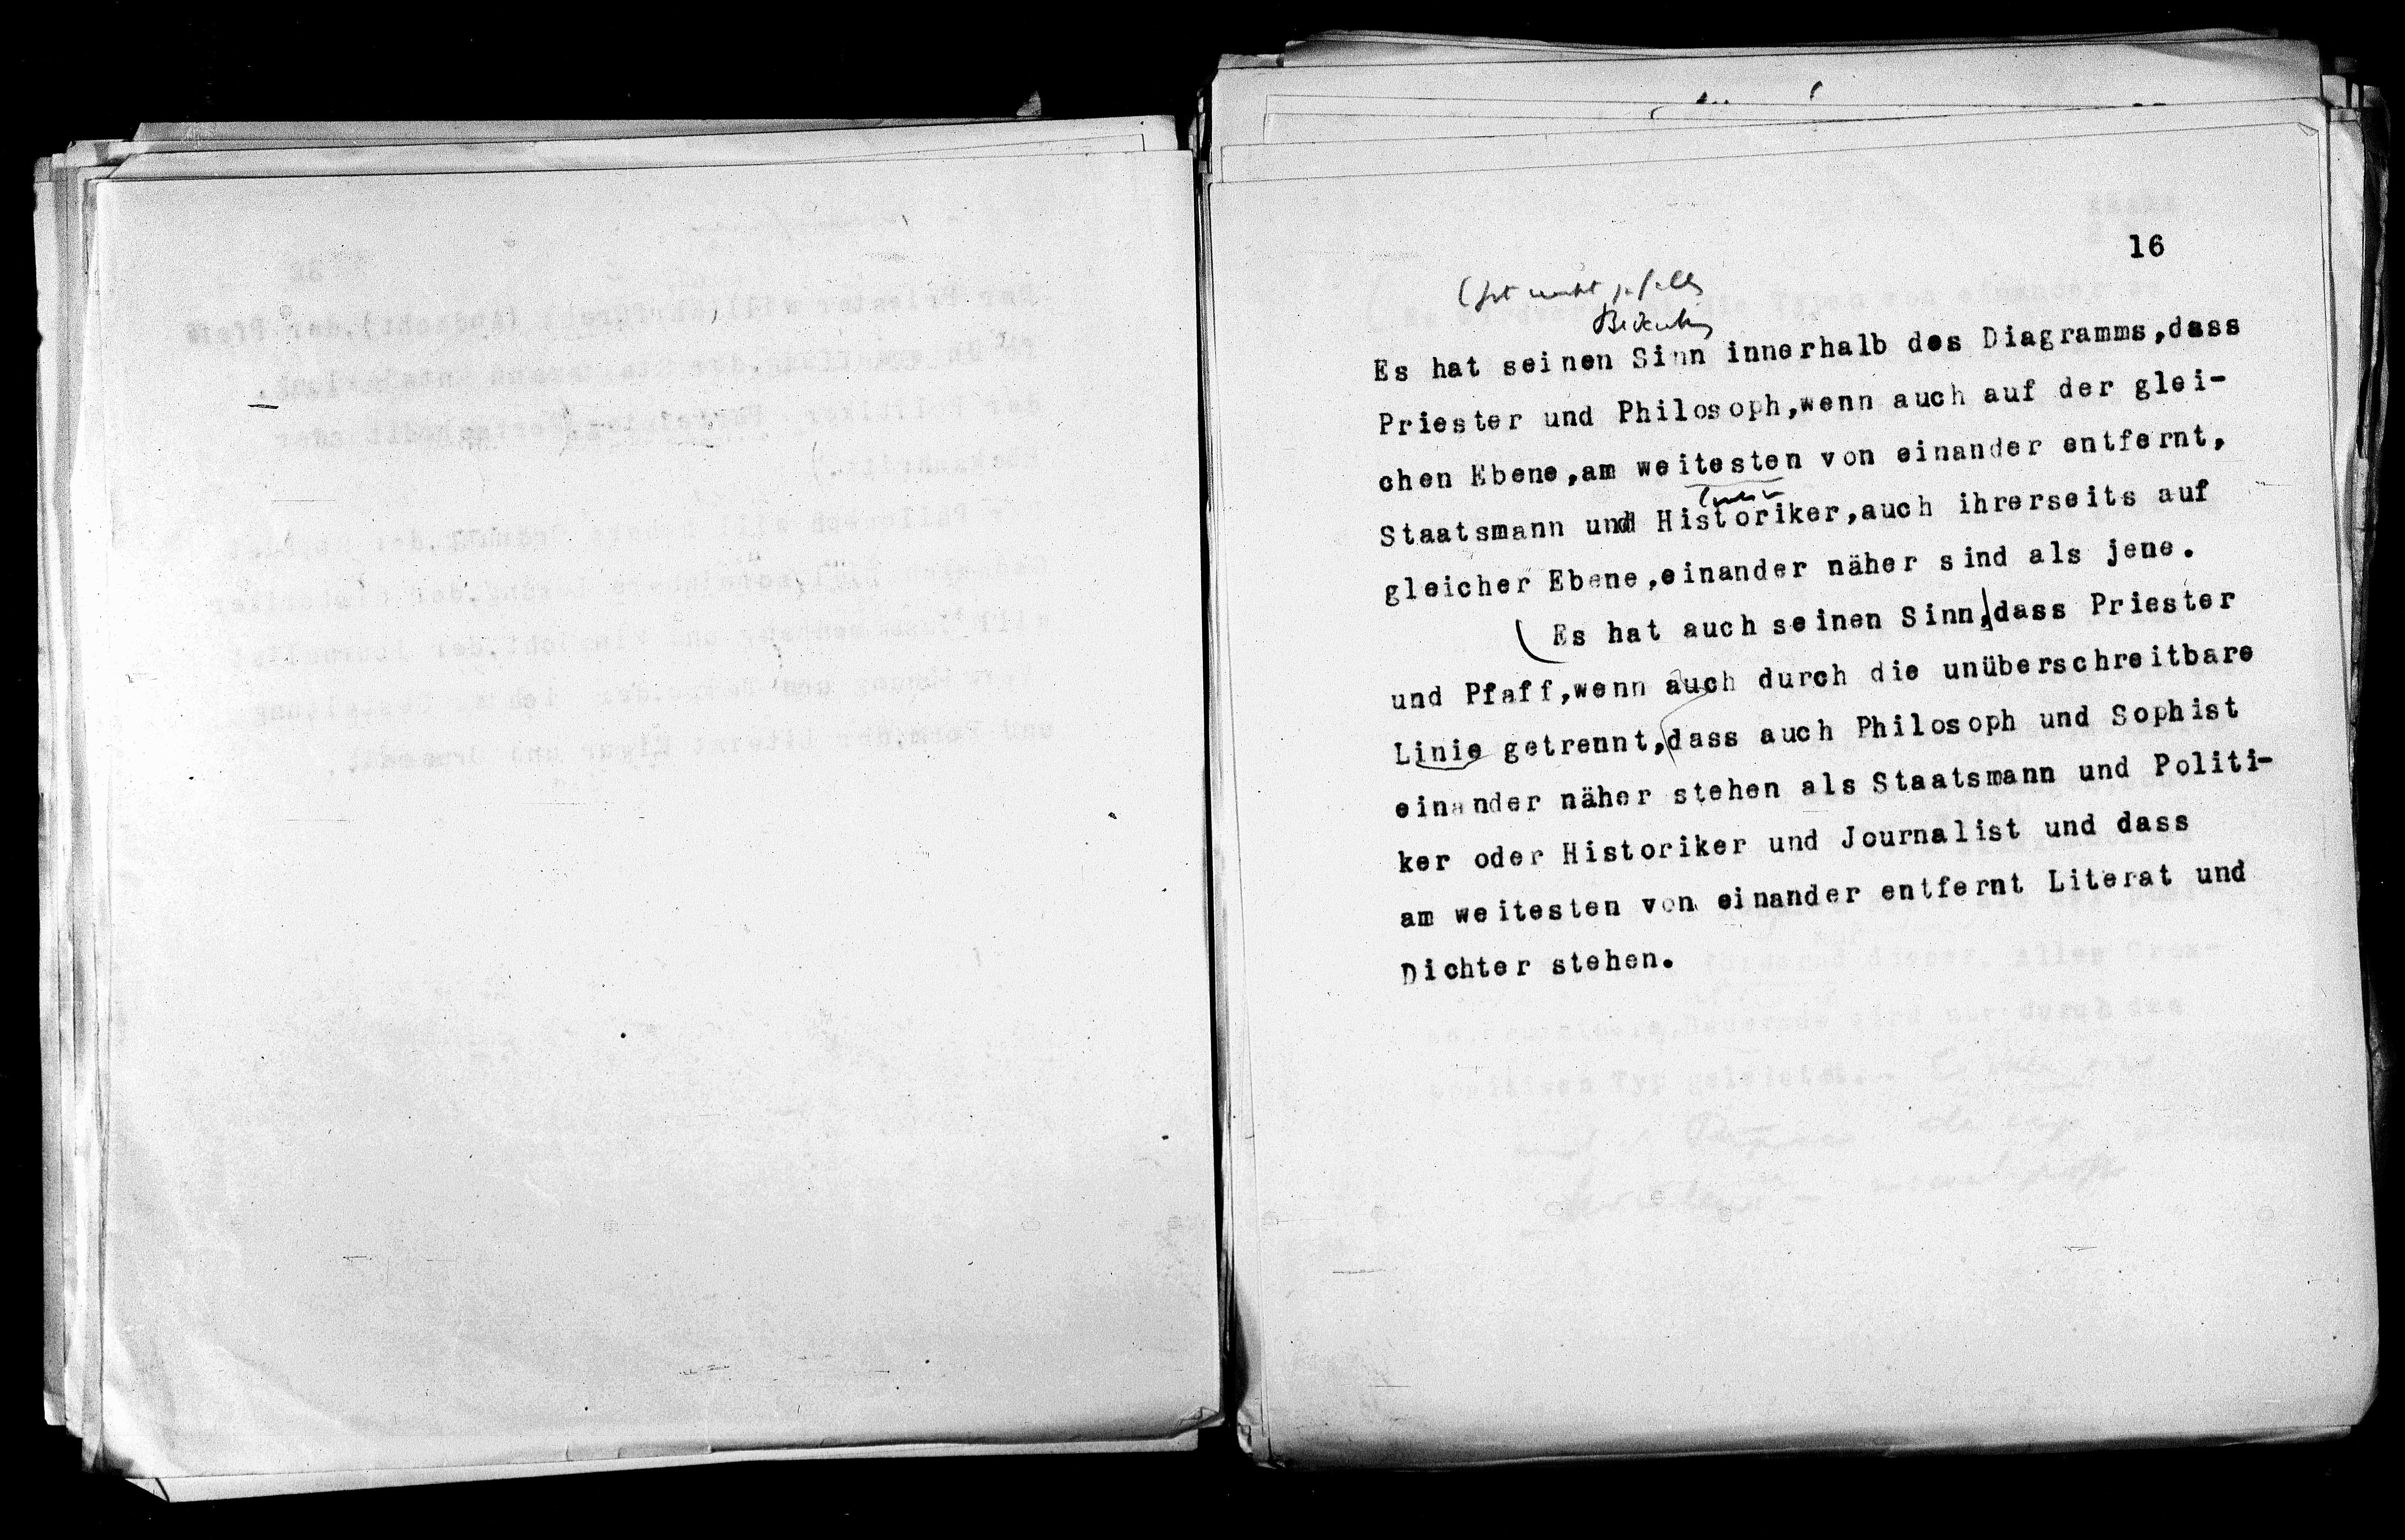 16
Bedeutung
Es hat seinen Sinn innerhalb des Diagramms,dass
Priester und Philosoph,wenn auch auf der glei-
chen Ebene,am weitesten von einander entfernt,
Staatsmann und Historiker,auch ihrerseits auf
gleicher Ebene,einander näher sind als jene.
(Es hat auch seinen Sinn,dass Priester
und Pfaff,wenn auch durch die unüberschreitbare
Linie getrennt,dass auch Philosoph und Sophist
einander näher stehen als Staatsmann und Politi-
ker oder Historiker und Journalist und dass
am weitesten von einander entfernt Literat und
Dichter stehen.